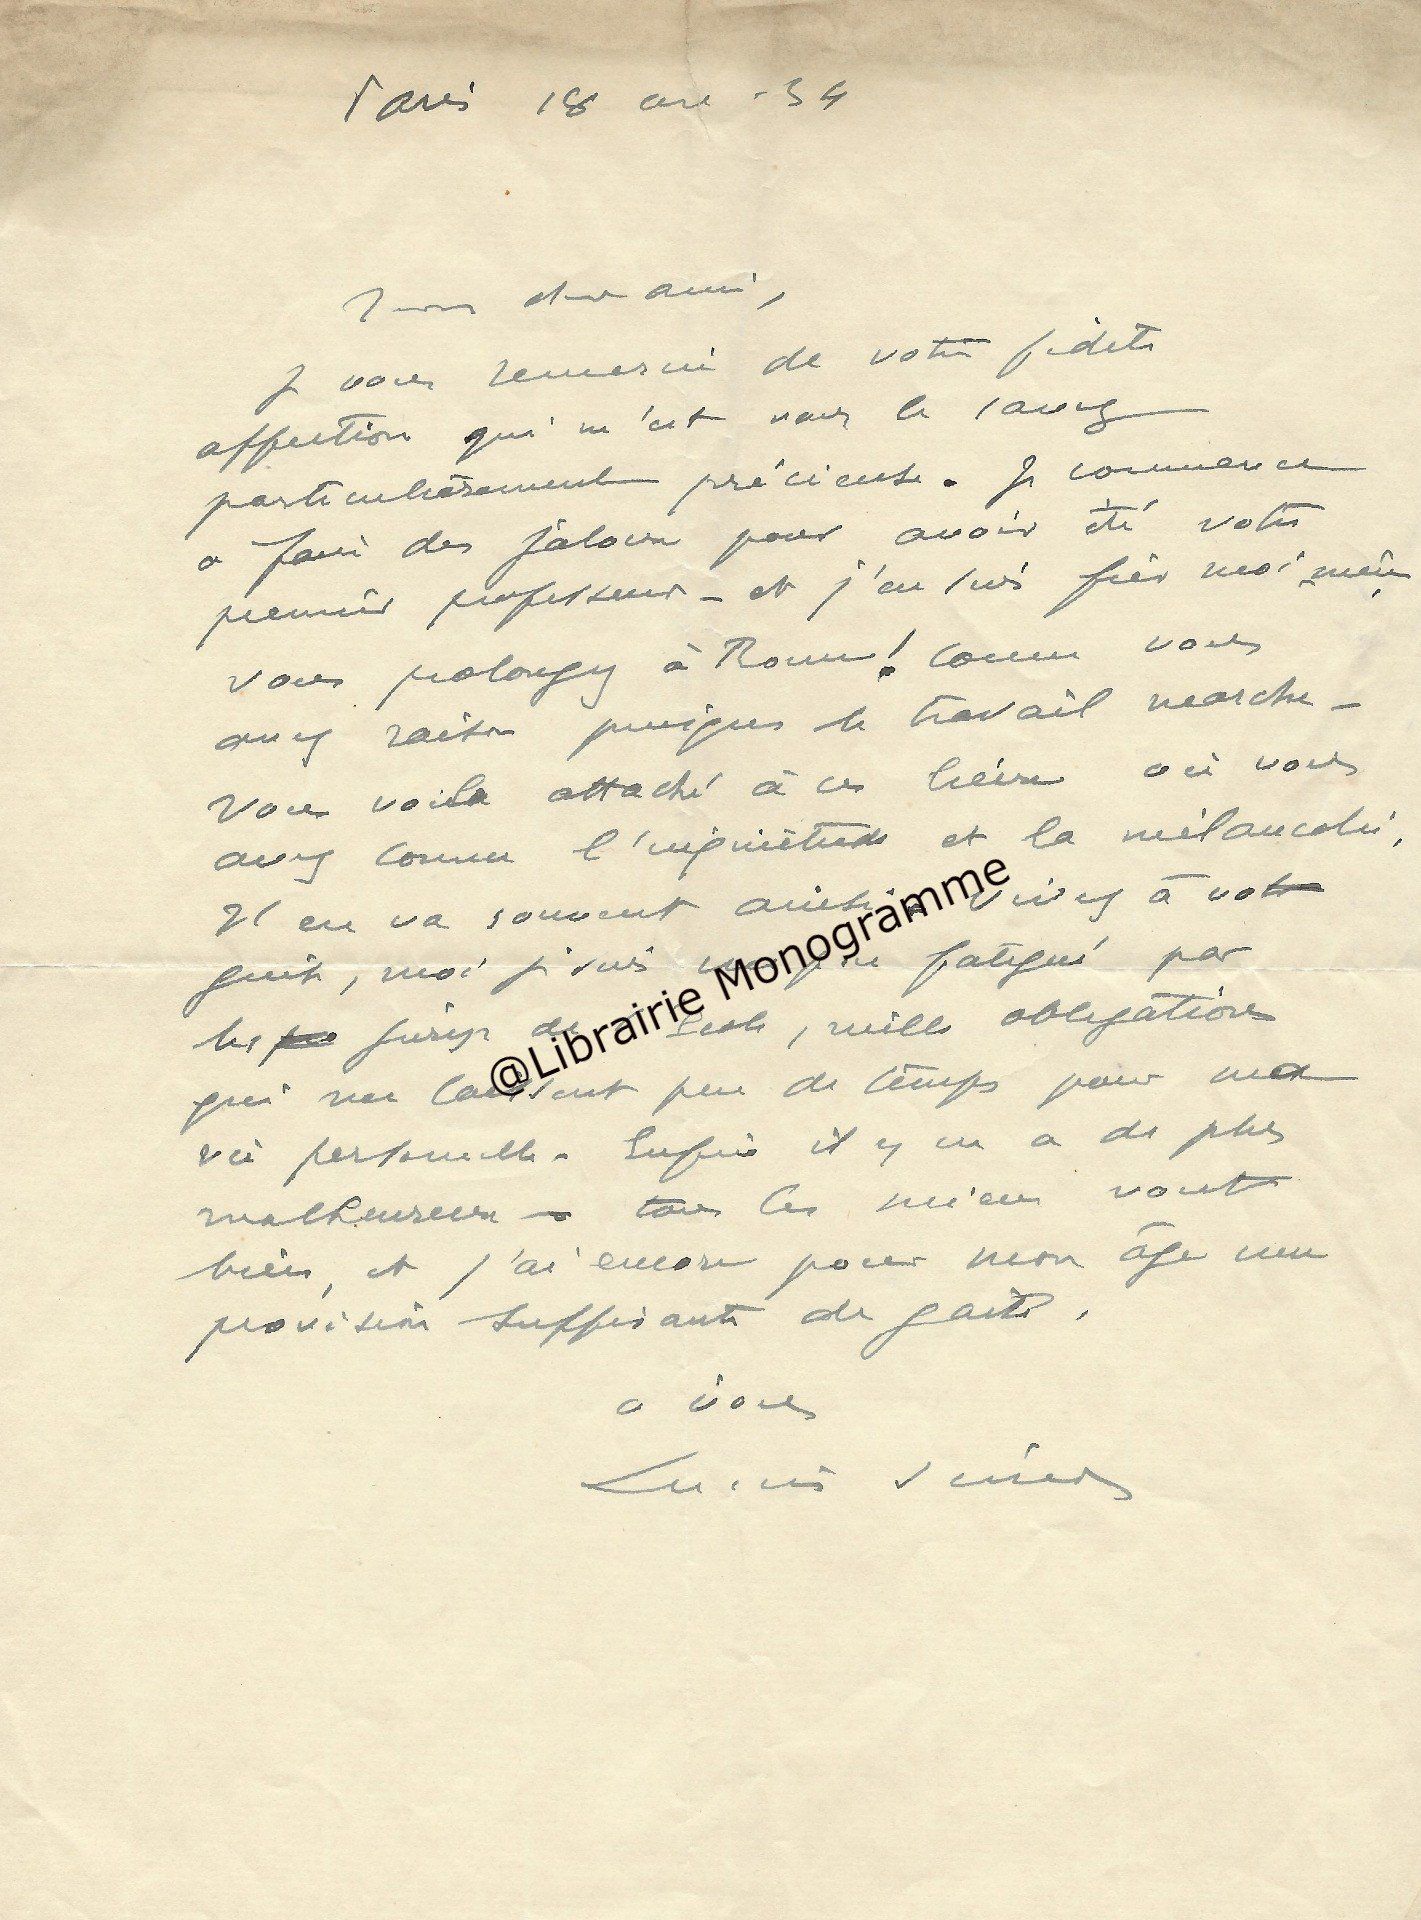 Paris 18 -34
Mon cher ami,
Je vous remercie de votre fidèle
affection qui m'est vous le savez
particulièrement précieuse. Je commence
a faire des jaloux pour avoir été votre
premier professeur - et j'en suis fier moi même,
vous prolongez à Rome! Comme vous
avez raison puisque le travail marche -
Vous voila attaché à ces lieux où vous
avez connu l'inquiétude et la mélancolie,
Il en va souvent ainsi. Vivez à votre
guise, moi je suis un peu fatigué par
les jurys de l'Ecole, mille obligations
qui me laissent peu de temps pour ma
vie personnelle. Enfin il y en a de plus
malheureux - tous les miens vont
bien, et j'ai encore pour mon âge une
provision suffisante de gaité.
a vous
Lucien Simon
@Librairie Monogramme